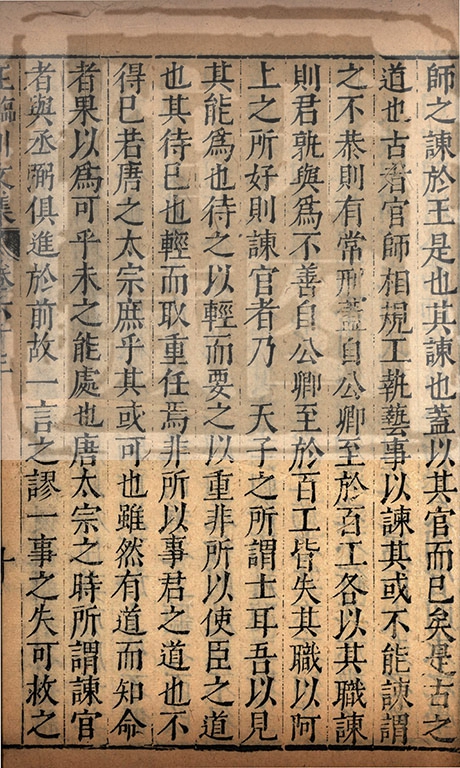 師之諫於王是也其諫也蓋以其官而已矣是古之
道也古者官師相規工執藝事以諫其或不能諫謂
之不恭則有常刑蓋自公卿至於百工各以其職諫
則君孰與為不善自公卿至於百工皆失其職以阿
上之所好則諫官者乃 天子之所謂士耳吾以見
其能為也待之以輕而要之以重非所以使臣之道
也其待巳也輕而取重任焉非所以事君之道也不
得巳若唐之太宗庶乎其或可也雖然有道而知命
者果以為可乎未之能處也唐太宗之時所謂諫官
者與丞弼俱進於前故一言之謬一事之失可救之
王臨川文集 卷六十三
十